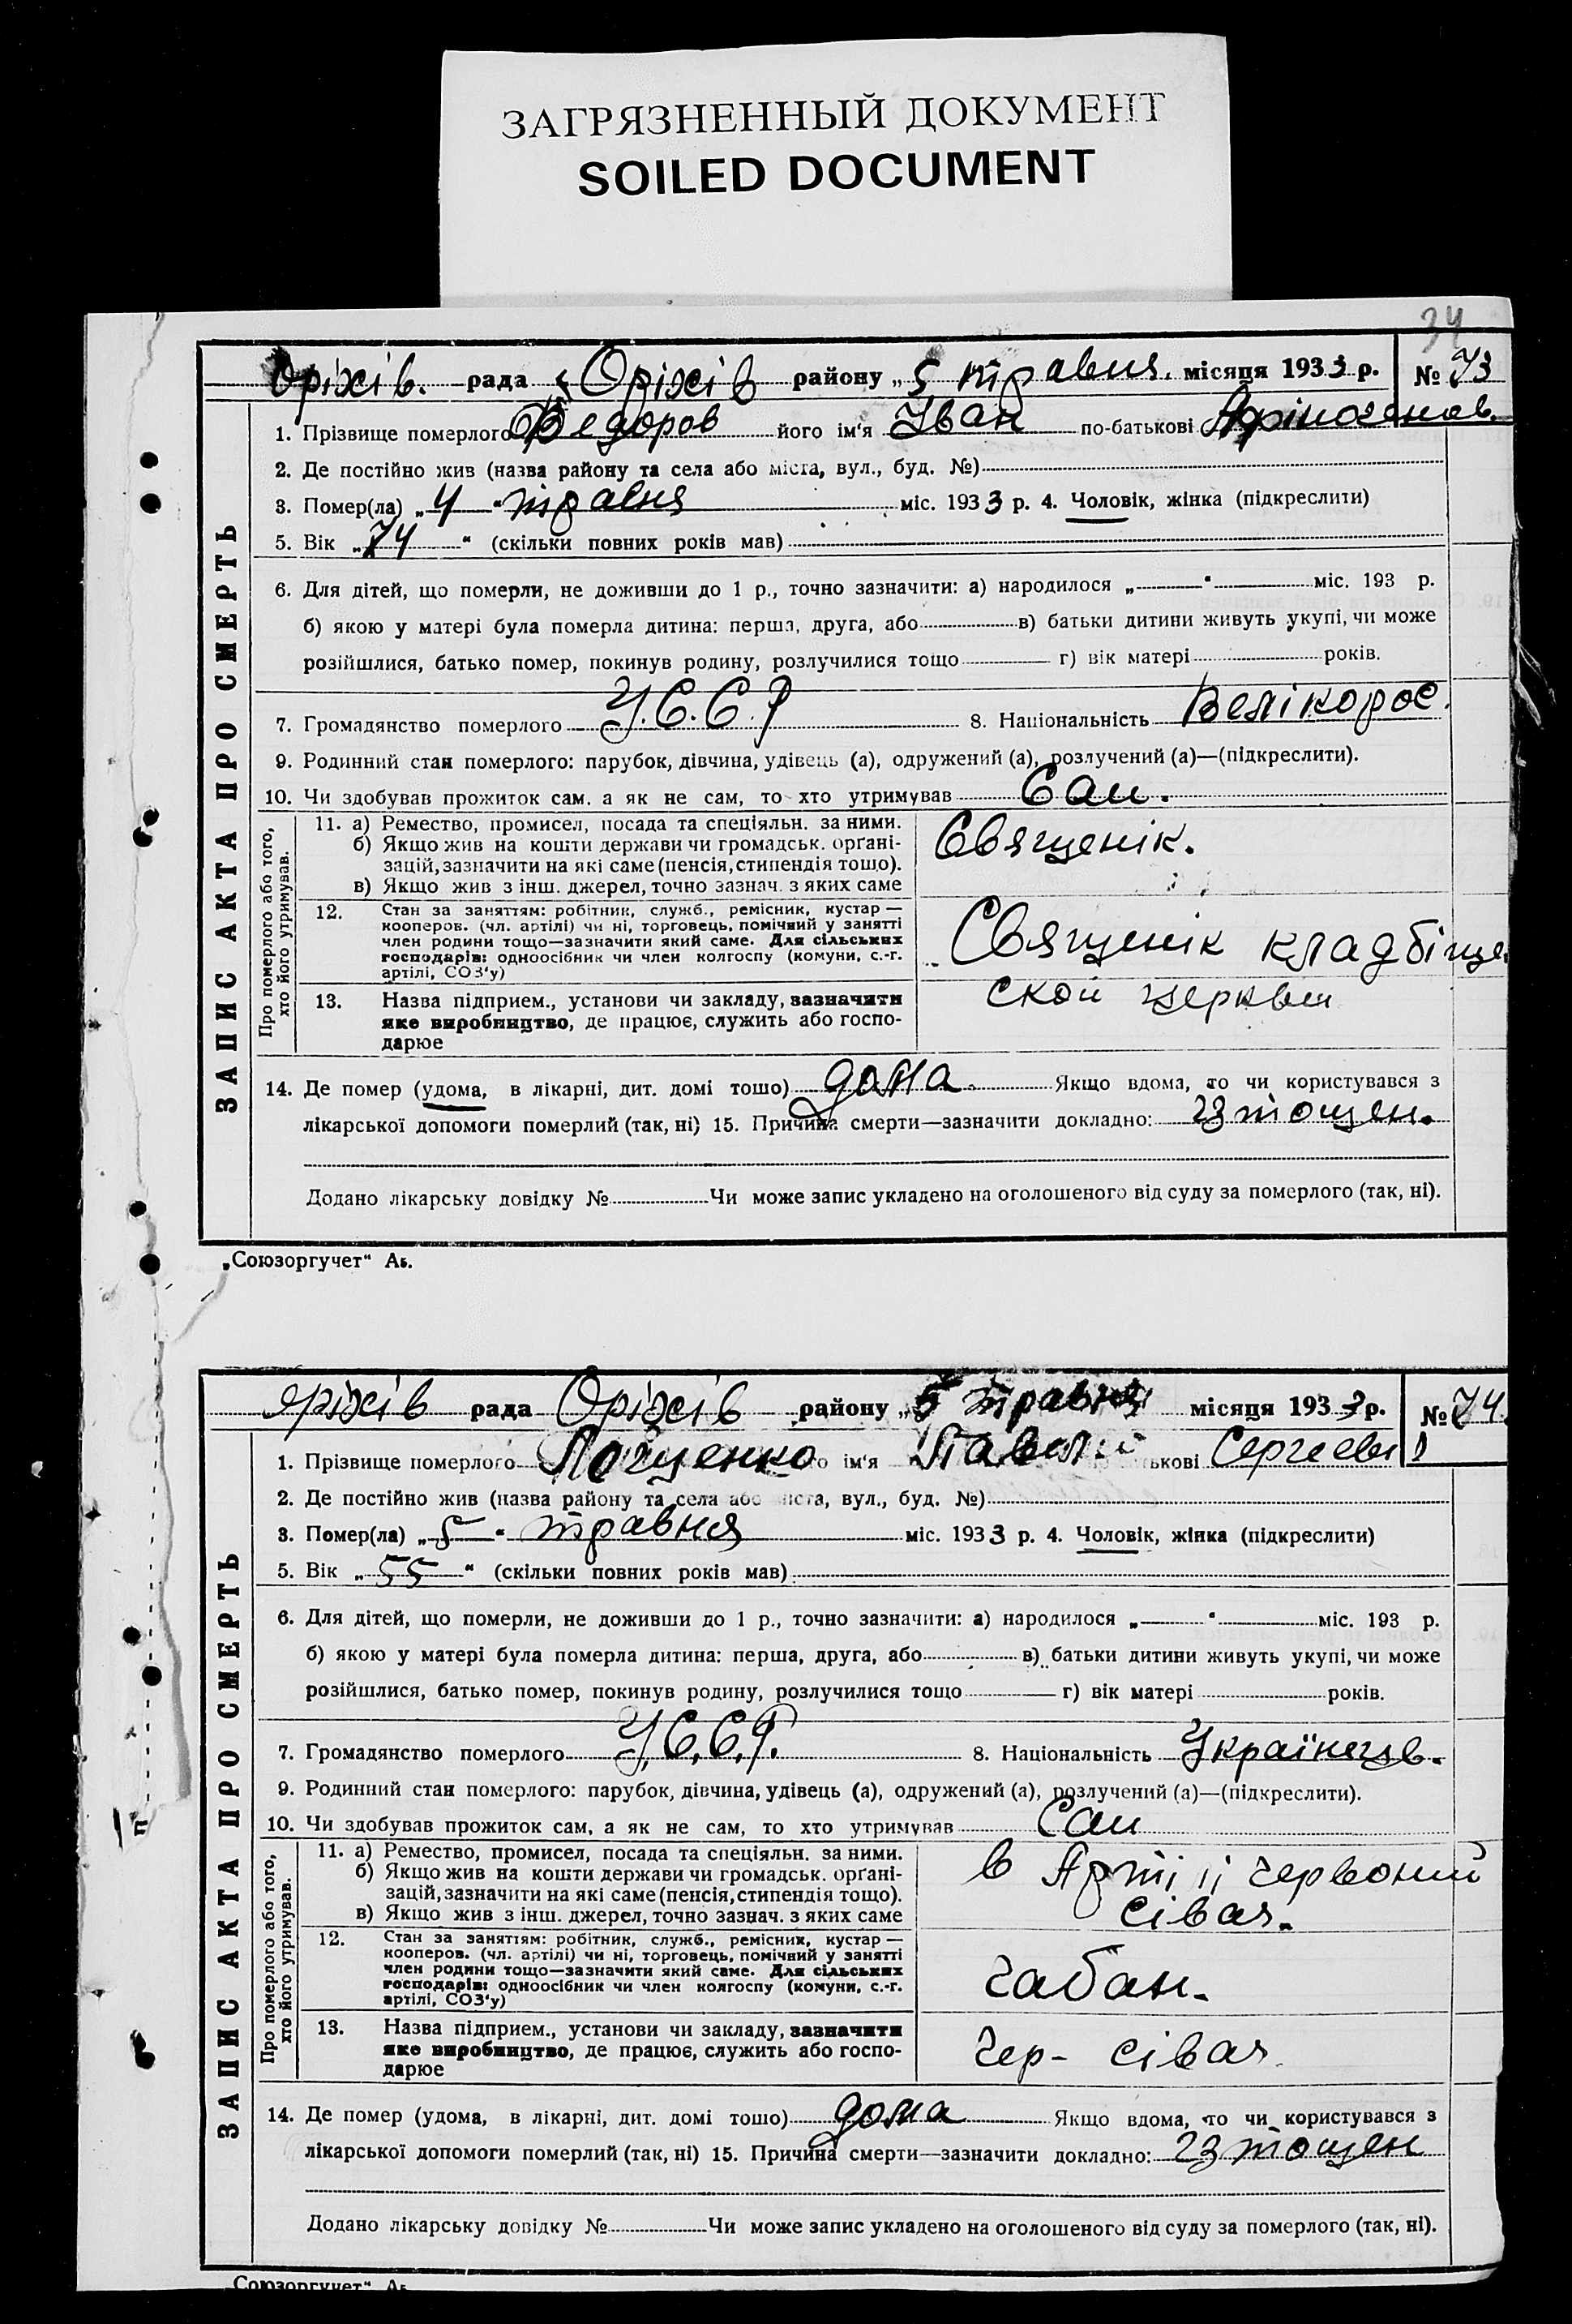 ЗАГРЯЗНЕННЫЙ ДОКУМЕНТ
SOILED DOCUMENT
34
Оріхів. рада Оріхів району „5 травня. місяця 1933 р. № 73
1. Прізвище померлого Федоров його ім'я Іван по-батькові
2. Де постійно жив (назва району та села або міста, вул., буд. №)
3. Помер(ла) „4" травня міс. 1933 р. 4. Чоловік, жінка (підкреслити)
5. Вік „74" (скільки повних років мав)
6. Для дітей, що померли, не доживши до 1 р., точно зазначити: а) народилося „ " міс. 193 р.
б) якою у матері була померла дитина: перша, друга, або в) батьки дитини живуть укупі, чи може
розійшлися, батько помер, покинув родину, розлучилися тощо г) вік матері років.
7. Громадянство померлого У.С.С.Р 8. Національність Велікорос.
9. Родинний стан померлого: парубок, дівчина, удівець (а), одружений (а), розлучений (а)—(підкреслити).
10. Чи здобував прожиток сам. а як не сам, то хто утримував Сам.
ЗАПИС АКТА ПРО СМЕРТЬ
Про померлого або того,
хто його утримував.
11. а) Ремество, промисел, посада та спеціяльн. за ними.
б) Якщо жив на кошти держави чи громадськ. орґані-
зацій, зазначити на які саме (пенсія, стипендія тощо).
в) Якщо жив з інш. джерел, точно зазнач. з яких саме
Священік.
12. Стан за заняттям: робітник, служб., ремісник, кустар—
кооперов. (чл. артілі) чи ні, торговець, помічний у занятті
член родини тощо—зазначити який саме. Для сільських
господарів: одноосібник чи член колгоспу (комуни, с.-г.
артілі, СОЗ'у)
Священік кладбіще
13. Назва підприєм., установи чи закладу, зазначити
яке виробництво, де працює, служить або госпо-
дарює
ской церкви
14. Де помер (удома, в лікарні, дит. домі тощо) дома. Якщо вдома, то чи користувався з
лікарської допомоги померлий (так, ні) 15. Причина смерти—зазначити докладно: Изтощен.
Додано лікарську довідку № Чи може запис укладено на оголошеного від суду за померлого (так, ні).
„Союзоргучет" Аб.
Оріхів рада Оріхів району „5 травня місяця 1933 р. № 74.
1. Прізвище померлого Лощенко ім'я Павел ькові Сергееви
2. Де постійно жив (назва району та села або міста, вул., буд. №)
3. Помер(ла) „5" травня міс. 1933 р. 4. Чоловік, жінка (підкреслити)
5. Вік „55" (скільки повних років мав)
6. Для дітей, що померли, не доживши до 1 р., точно зазначити: а) народилося „ " міс. 193 р.
б) якою у матері була померла дитина: перша, друга, або в) батьки дитини живуть укупі, чи може
розійшлися, батько помер, покинув родину, розлучилися тощо г) вік матері років.
7. Громадянство померлого У.С.С.Р. 8. Національність Українець.
9. Родинний стан померлого: парубок, дівчина, удівець (а), одружений (а), розлучений (а)—(підкреслити).
10. Чи здобував прожиток сам, а як не сам, то хто утримував Сам
ЗАПИС АКТА ПРО СМЕРТЬ
Про померлого або того,
хто його утримував.
11. а) Ремество, промисел, посада та спеціяльн. за ними.
б) Якщо жив на кошти держави чи громадськ. орґані-
зацій, зазначити на які саме (пенсія, стипендія тощо).
в) Якщо жив з інш. джерел, точно зазнач. з яких саме
в Артіїі червоний
сівач.
12. Стан за заняттям: робітник, служб., ремісник, кустар—
кооперов. (чл. артілі) чи ні, торговець, помічний у занятті
член родини тощо—зазначити який саме. Для сільських
господарів: одноосібник чи член колгоспу (комуни, с.-г.
артілі, СОЗ'у)
чабан.
13. Назва підприєм., установи чи закладу, зазначити
яке виробництво, де працює, служить або госпо-
дарює
чер- сівач.
14. Де помер (удома, в лікарні, дит. домі тощо) дома Якщо вдома, то чи користувався з
лікарської допомоги померлий (так, ні) 15. Причина смерти—зазначити докладно: Изтощен
Додано лікарську довідку № Чи може запис укладено на оголошеного від суду за померлого (так, ні).
„Союзоргучет" Аб.